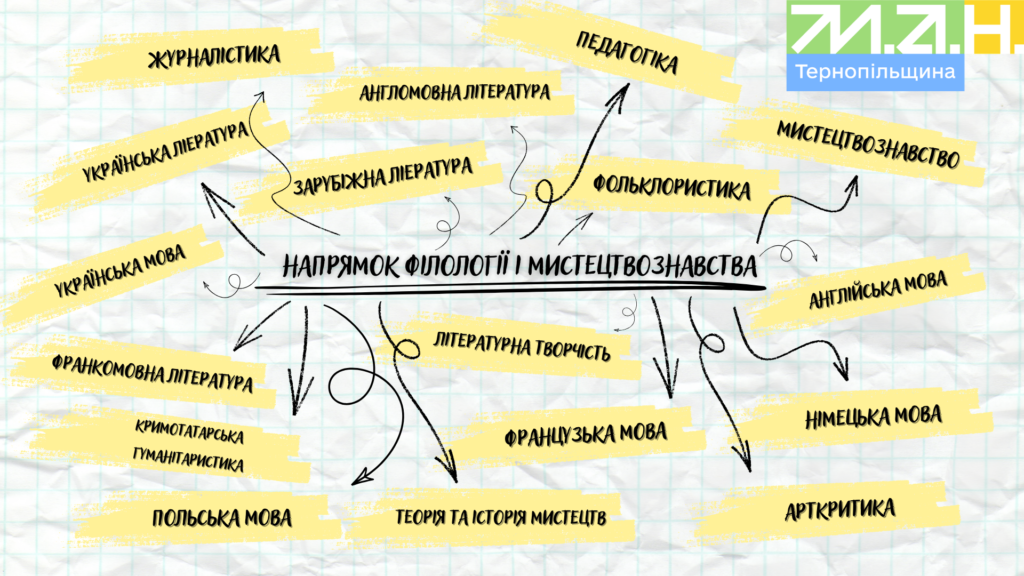 М.А.Н.
Тернопільщина
ЖУРНАЛІСТИКА
ПЕДАГОГІКА
АНГЛОМОВНА ЛІТЕРАТУРА
УКРАЇНСЬКА ЛІЕРАТУРА
МИСТЕЦТВОЗНАВСТВО
ЗАРУБІЖНА ЛІЕРАТУРА
ФОЛЬКЛОРИСТИКА
НАПРЯМОК ФІЛОЛОГІЇ І МИСТЕЦТВОЗНАВСТВА
УКРАЇНСЬКА МОВА
АНГЛІЙСЬКА МОВА
ЛІТЕРАТУРНА ТВОРЧІСТЬ
ФРАНКОМОВНА ЛІТЕРАТУРА
НІМЕЦЬКА МОВА
КРИМОТАТАРСЬКА
ГУМАНІТАРИСТИКА
ФРАНЦУЗЬКА МОВА
ПОЛЬСЬКА МОВА
ТЕОРІЯ ТА ІСТОРІЯ МИСТЕЦТВ
АРТКРИТИКА